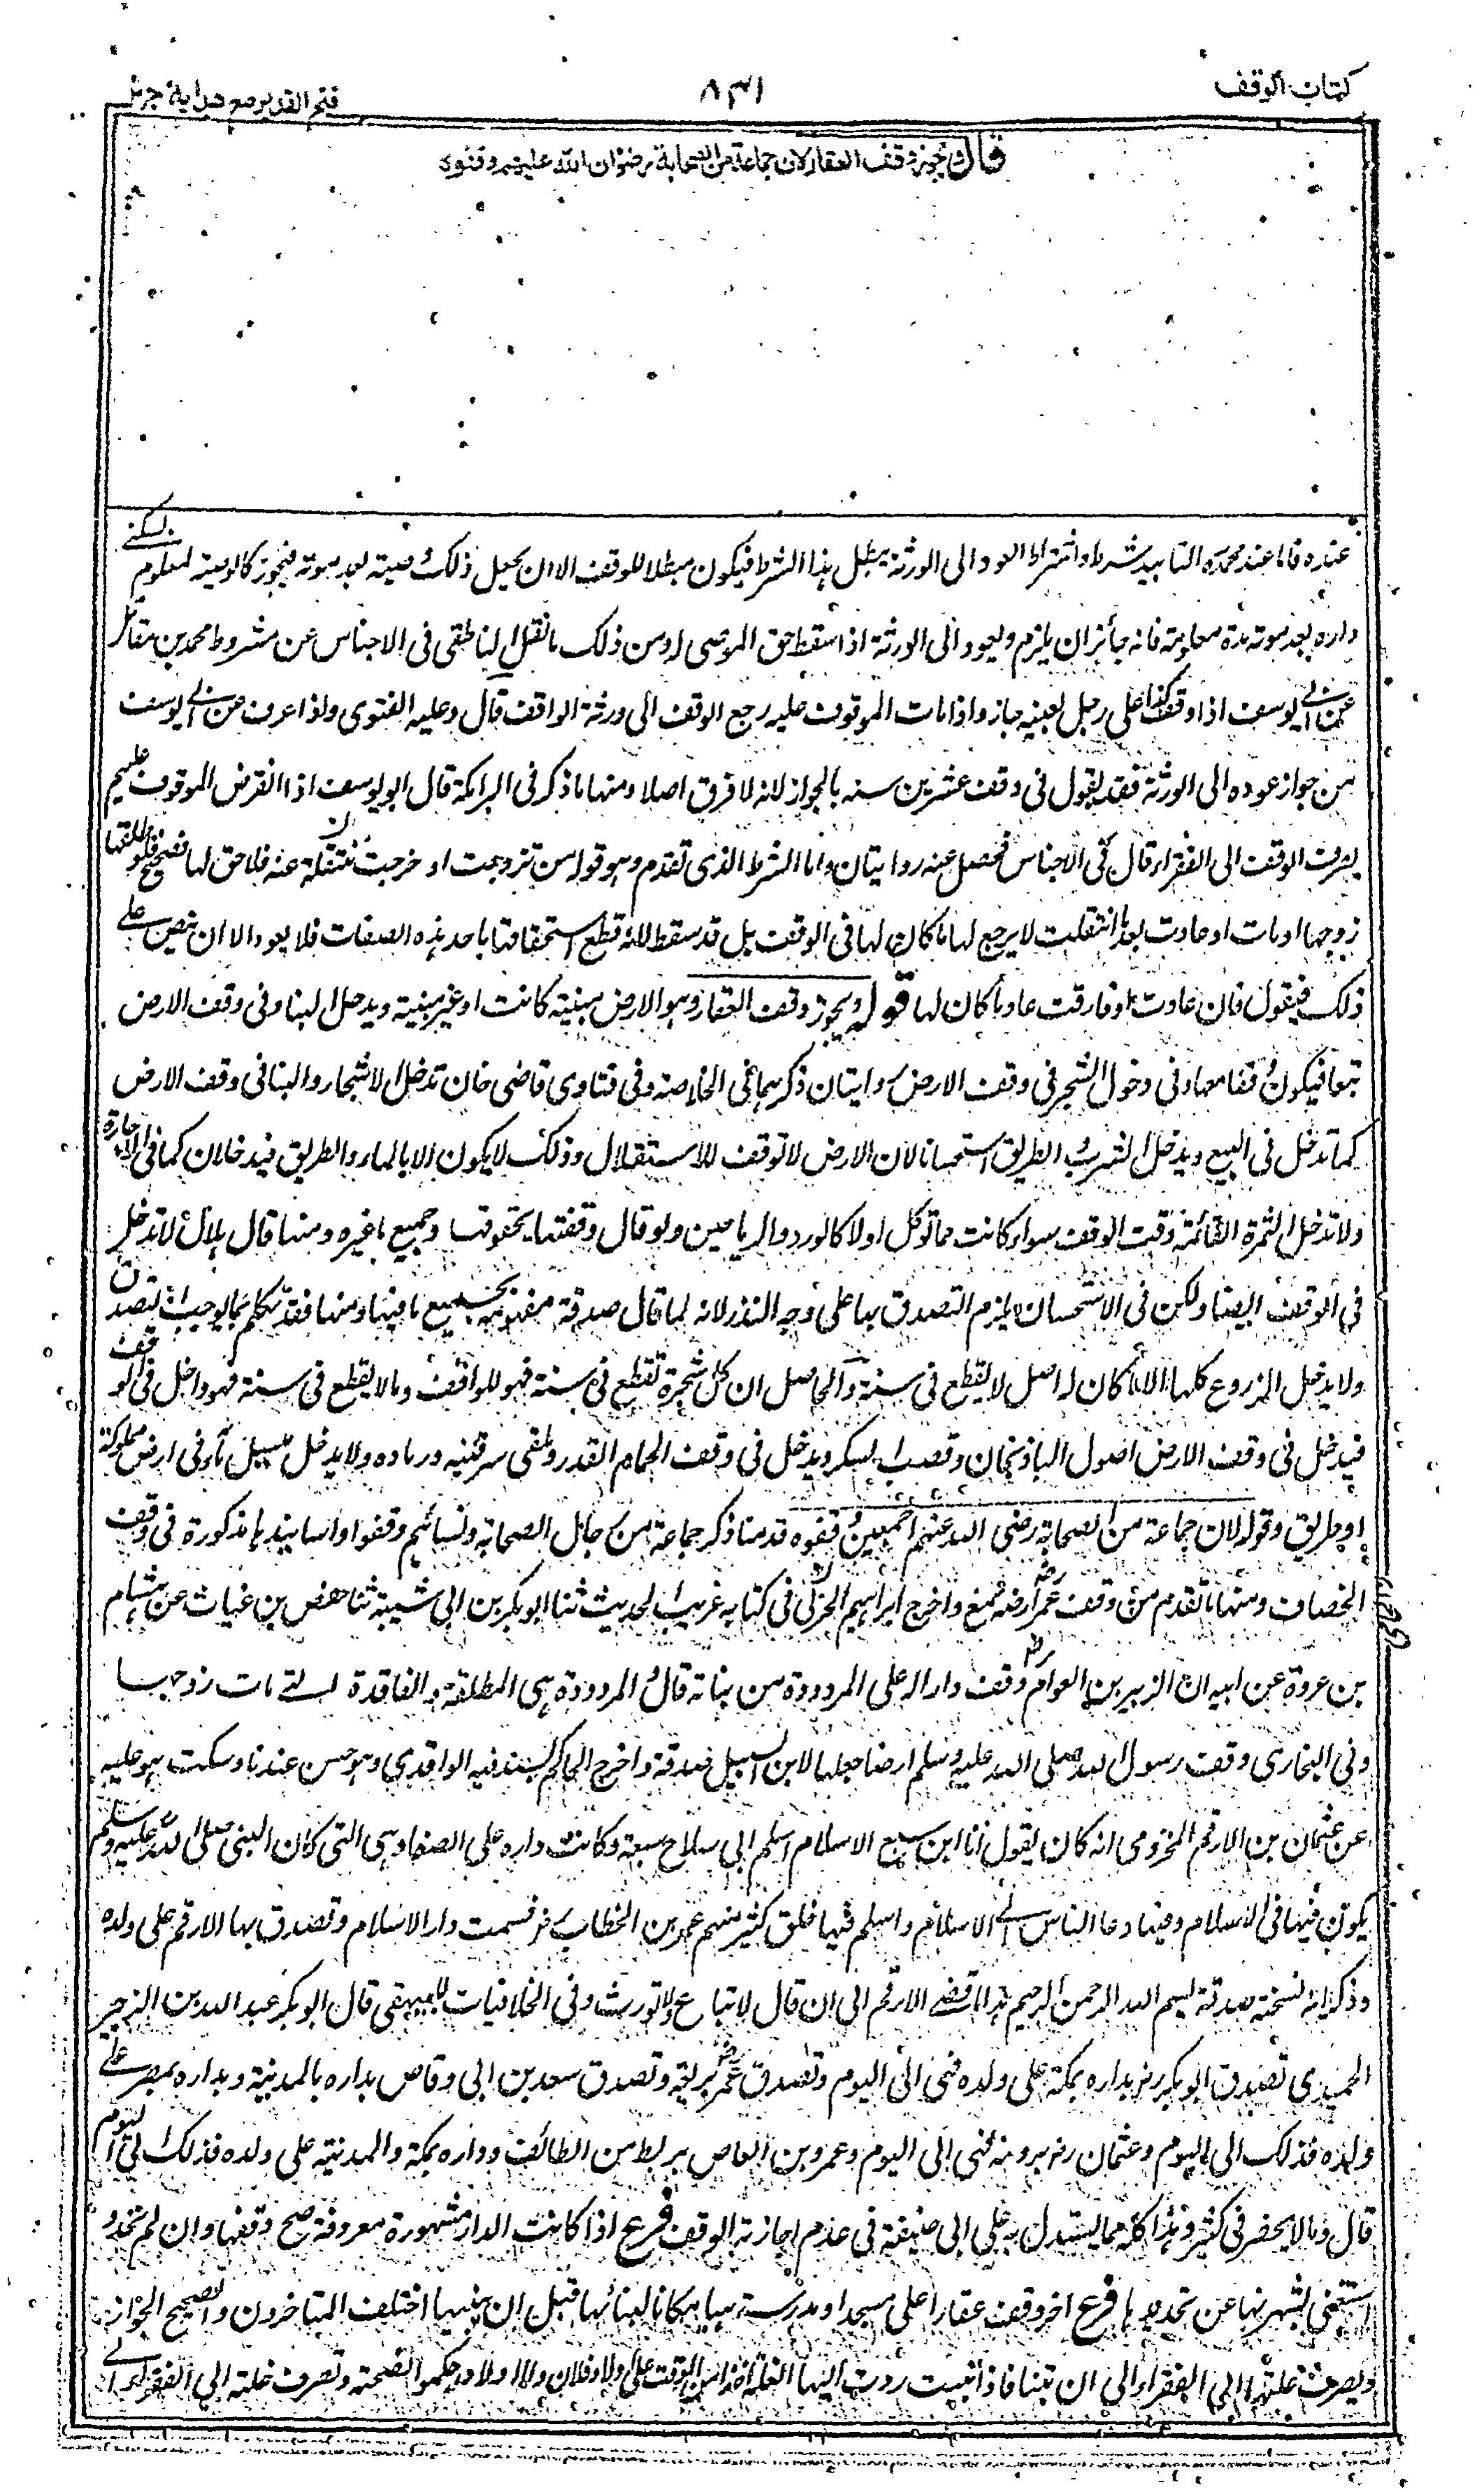 كتاب الوقف
٨٣١
فتح القدير مع هداية جز ثا
قال ويجوز وقف العقار لان جماعة من الصحابة رضوان الله عليهم وقفوه
عنده فاما عند محمد ره التابيد شرط واشتراط العود الى الورثة يبطل هذا الشرط فيكون مبطلا للوقف الا ان يجعل ذلك وصية بعد موته فيجوز كالوصية لمعلوم بسكنى
داره بعد موته مدة معلومة فانه جائز ان يلزم ويعود الى الورثة اذا سقط حق الموصى له ومن ذلك ما نقل الناطقى فى الاجناس عن شروط محمد بن مقاتل
عن ابى يوسف اذا وقف كذا على رجل بعينه جاز واذا مات الموقوف عليه رجع الوقف الى ورثة الواقف قال وعليه الفتوى واذا عرف عن ابى يوسف
من جواز عوده الى الورثة فقد يقول فى وقف عشرين سنه بالجواز لانه لا فرق اصلا ومنها ما ذكر فى البرامكة قال ابو يوسف اذا انقرض الموقوف عليهم
يصرف الوقف الى الفقراء قال فى الاجناس فحصل عنه روايتان واما الشرط الذى تقدم وهو قوله من تزوجت او خرجت منتقلة عنه فلا حق لها فصحيح فلو طلقها
زوجها او مات او عادت بعد ما انتقلت لا يرجع لها ما كان لها فى الوقف بل قد سقط لانه قطع استحقاقها باحد هذه الصفات فلا يعود الا ان ينص على
ذلك فيقول فان عادت او فارقت عاد ما كان لها قوله ويجوز وقف العقار وهو الارض مبنية كانت او غير مبنية ويدخل البناء فى وقف الارض
تبعا فيكون وقفا معها وفى دخول الشجر فى وقف الارض روايتان ذكرهما فى الخلاصة وفى فتاوى قاضى خان تدخل الاشجار والبنا فى وقف الارض
كما تدخل فى البيع ويدخل الشرب والطريق استحسانا لان الارض لا توقف الا للاستغلال وذلك لا يكون الا بالماء والطريق فيدخلان كما فى الاجارة
ولا تدخل الثمرة القائمة وقت الوقف سواء كانت مما توكل او لا كالورد والرياحين ولو قال وقفتها بحقوقها وجميع ما فيها ومنها قال هلال لا تدخل
فى الوقف ايضا ولكن فى الاستحسان يلزم التصدق بها على وجه النذر لانه لما قال صدقة موقوفة بجميع ما فيها ومنها فقد تكلم بما يوجب التصدق
ولا يدخل الزروع كلها الا ما كان له اصل لا يقطع فى سنة والحاصل ان كل شجرة تقطع فى سنة فهو للواقف وما لا يقطع فى سنة فهو داخل فى الوقف
فيدخل فى وقف الارض اصول الباذنجان وقصب السكر ويدخل فى وقف الحمام القدر وملقى سرقينه ورماده ولا يدخل مسيل ماء فى ارض مملوكة
او طريق وقوله لان جماعة من الصحابة رضى الله عنهم اجمعين وقفوه قدمنا ذكر جماعة من رجال الصحابة ونسائهم وقفوا واسانيدها مذكورة فى وقف
الخصاف ومنها ما تقدم من وقف عمر رض ارضه ثمغ واخرج ابراهيم الحربى فى كتابه غريب الحديث ثنا ابو بكر بن ابى شيبة ثنا حفص بن غياث عن هشام
بن عروة عن ابيه ان الزبير بن العوام رض وقف دارا له على المردودة من بناته قال والمردودة هى المطلقة والفاقدة التى مات زوجها
وفى البخارى وقف رسول الله صلى الله عليه وسلم ارضا جعلها لابن السبيل صدقة واخرج الحاكم بسند فيه الواقدى وهو حسن عندنا وسكت هو عليه
عن عثمان بن الارقم المخزومى انه كان يقول انا ابن سبع الاسلام اسلم ابى سابع سبعة وكانت داره على الصفا وهى التى كان النبى صلى الله عليه وسلم
يكون فيها فى الاسلام وفيها دعا الناس الى الاسلام واسلم فيها خلق كثير منهم عمر بن الخطاب رض فسميت دار الاسلام وتصدق بها الارقم على ولده
وذكر ان نسخته صدقة بسم الله الرحمن الرحيم هذا ما قضى الارقم الى ان قال لا تباع ولا تورث وفى الخلافيات للبيهقى قال ابو بكر عبد الله بن الزبير
الحميدى تصدق ابو بكر رض بداره بمكة على ولده فهى الى اليوم وتصدق عمر رض بربعه وتصدق سعد بن ابى وقاص بداره بالمدينة وبداره بمصر على
ولده فذلك الى اليوم وعثمان رض برومة فهى الى اليوم وعمرو بن العاص بربط من الطائف وداره بمكة والمدينة على ولده فذلك الى اليوم
قال وما لا يحضرنى كثير وهذا كله مما يستدل به على ابى حنيفة فى عدم اجازته الوقف فرع اذا كانت الدار مشهورة معروفة صح وقفها وان لم تحدد
استغنى لشهرتها عن تحديدها فرع اخر وقف عقارا على مسجد او مدرسة هيا مكانا لبنائها قبل ان يبنيها اختلف المتاخرون والصحيح الجواز
ويصرف غلتها الى الفقراء الى ان تبنا فاذا بنيت ردت اليها الغلة اخذا من الوقف على اولاد فلان ولا اولاد له حكموا بصحته وتصرف غلته الى الفقراء الى